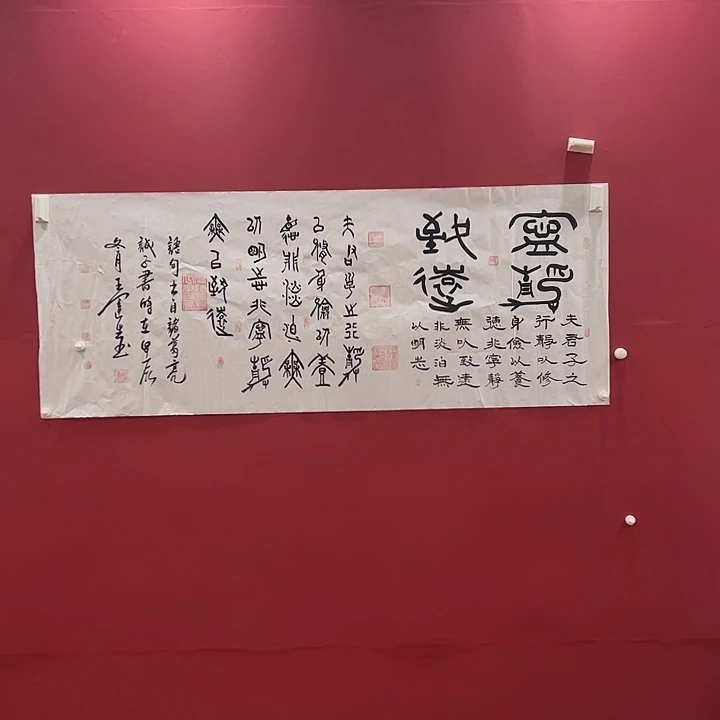 寧靜
致遠
夫君子之
行靜以修
身儉以養
德非寧靜
無以致遠
非淡泊無
以明志
夫君子之行靜
以修身儉以養
德非澹泊無
以明志非寧靜
無以致遠
語句出自諸葛亮
誡子書時在甲辰
冬月王